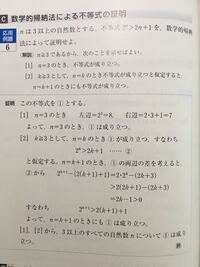 C 数学的帰納法による不等式の証明
応用例題 6
nは3以上の自然数とする。不等式 2ⁿ>2n+1 を，数学的帰納
法によって証明せよ。
解説 nは3以上であるから，次のことを示せばよい。
[1] n=3のとき，不等式が成り立つ。
[2] k≧3として，n=kのとき不等式が成り立つと仮定すると，
n=k+1のときにも不等式が成り立つ。
証明 この不等式を①とする。
[1] n=3のとき 左辺=2³=8, 右辺=2・3+1=7
よって，n=3のとき，①は成り立つ。
[2] k≧3として，n=kのとき①が成り立つ，すなわち
2ᵏ>2k+1 …… ②
と仮定する。n=k+1のとき，①の両辺の差を考えると，
②から 2ᵏ⁺¹−{2(k+1)+1}=2・2ᵏ−(2k+3)
>2(2k+1)−(2k+3)
=2k−1>0
すなわち 2ᵏ⁺¹>2(k+1)+1
よって，n=k+1のときにも①は成り立つ。
[1], [2]から，3以上のすべての自然数nについて①は成り立つ。
終